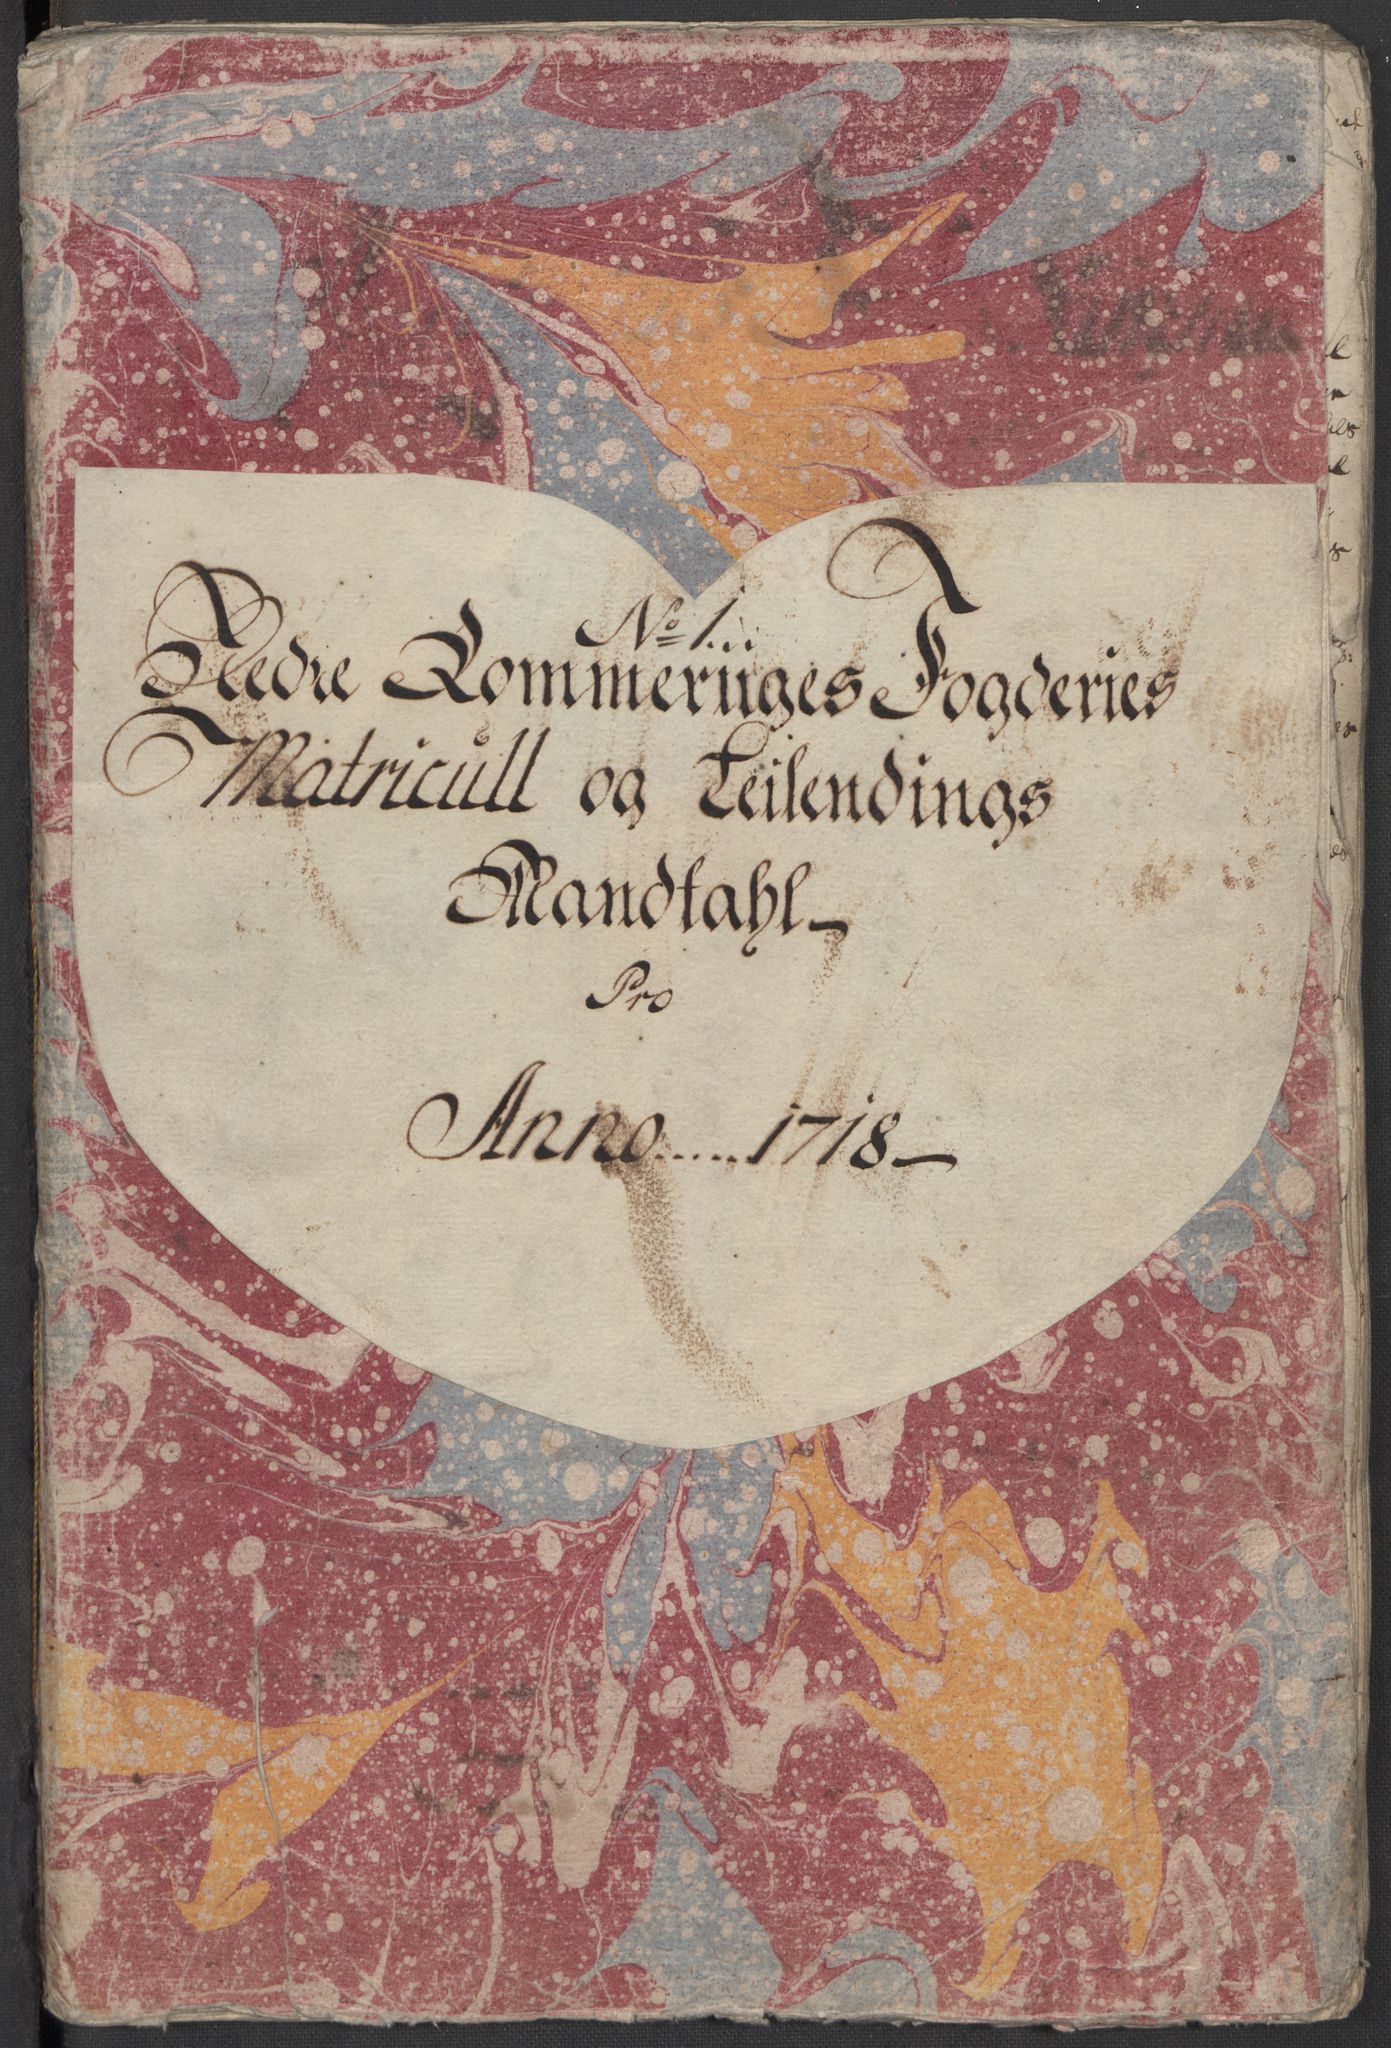 No 1...
Nedre Rommeriiges Fogderies
Matricull og Leilendings
Mandtahl
Pro
Anno..... 1718